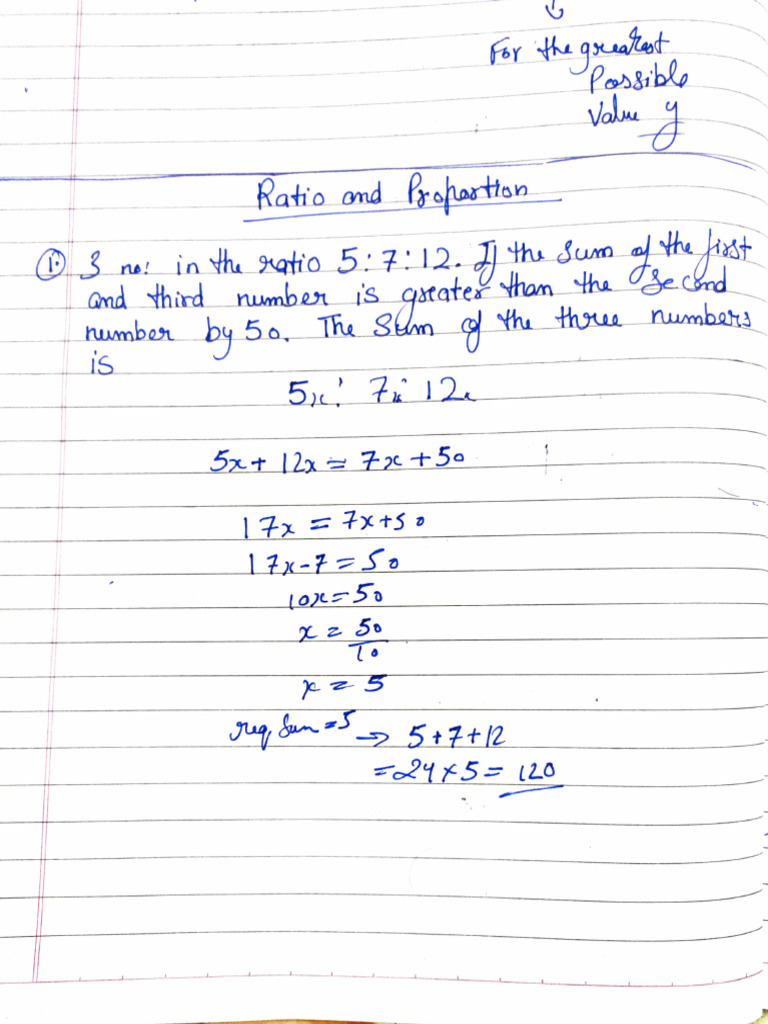 For the greatest
Possible
Value y
Ratio and Proportion
1. 3 no: in the ratio 5:7:12. If the sum of the first
and third number is greater than the second
number by 50. The Sum of the three numbers
is
5x: 7x: 12x
5x + 12x = 7x + 50
17x = 7x + 50
17x - 7 = 50
10x = 50
x = 50
10
x = 5
req Sum = 5 → 5 + 7 + 12
= 24 × 5 = 120